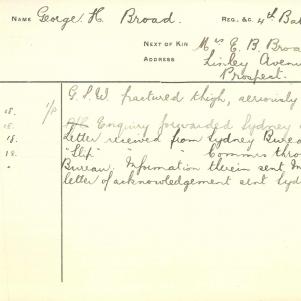 NAME George H. Broad. REG. &C. 4th Bat
NEXT OF KIN Mrs E. B. Broa
ADDRESS Linley Avenue
Prospect.
G.S.W. fractured thigh, seriously
18. Enquiry forwarded Sydney
18. Letter received from Sydney Bureau
18. "Slip" " " Commrs thro
" Bureau. Information therein sent In
letter of acknowledgement sent Syd